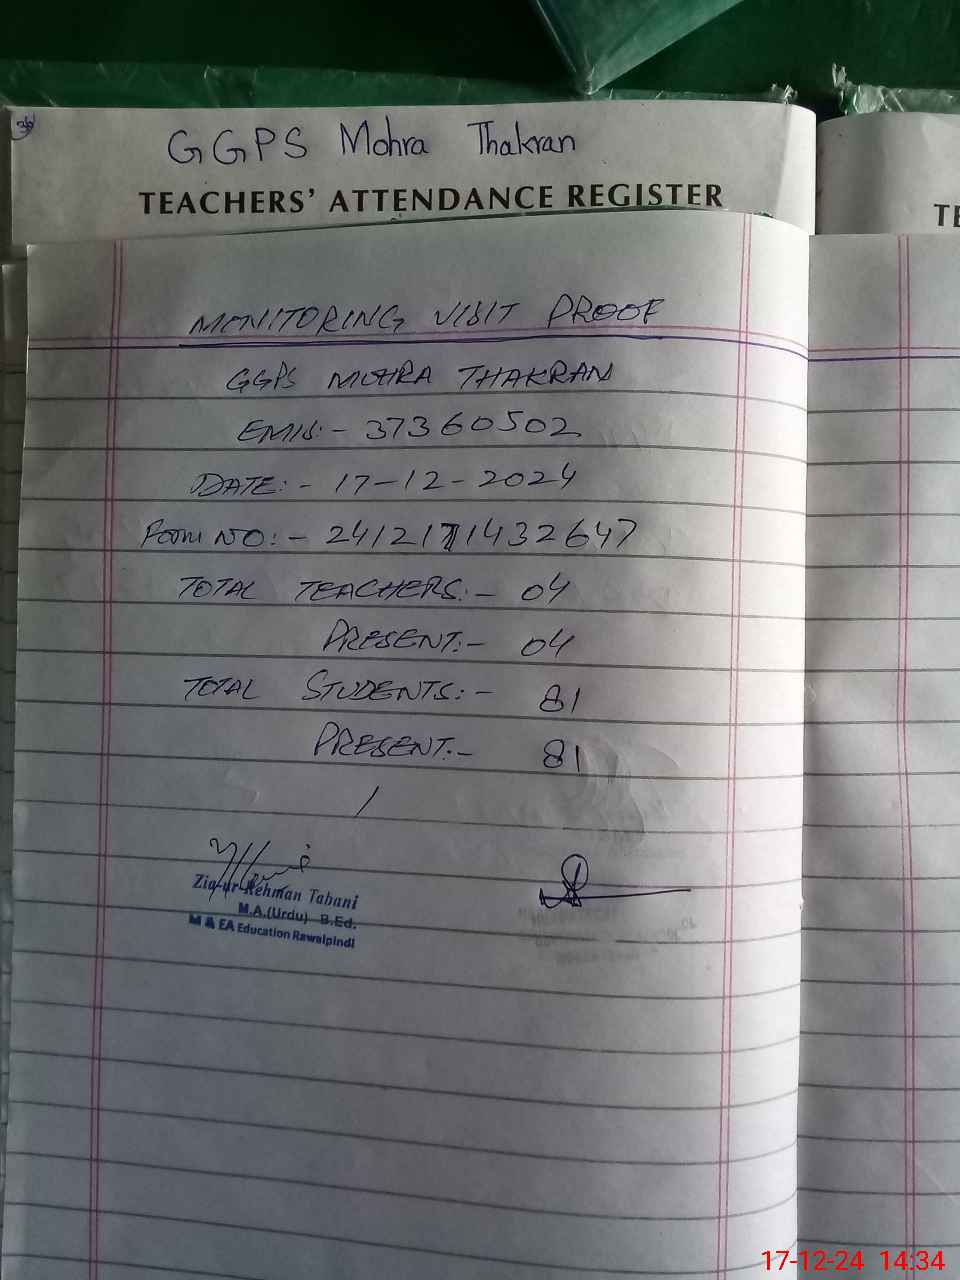 GGPS Mohra Thakran
TEACHERS' ATTENDANCE REGISTER
TE
MONITORING VISIT PROOF
GGPS MOHRA THAKRAN
EMIS:- 37360502
DATE:- 17-12-2024
Form NO:- 2412171432647
TOTAL TEACHERS:- 04
PRESENT:- 04
TOTAL STUDENTS:- 81
PRESENT:- 81
Zia-ur-Rehman Tabani
M.A.(Urdu) B.Ed.
M & EA Education Rawalpindi
17-12-24 14:34